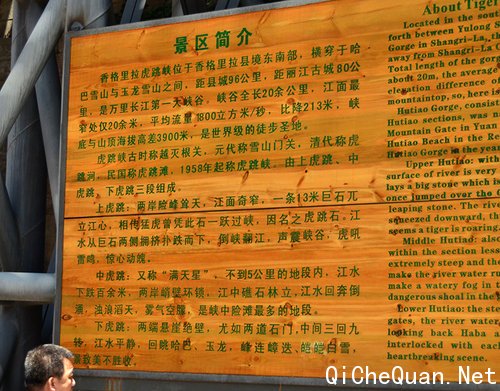 景区简介
香格里拉虎跳峡位于香格里拉县境东南部，横穿于哈
巴雪山与玉龙雪山之间，距县城96公里，距丽江古城80公
里，是万里长江第一大峡谷，峡谷全长20余公里，江面最
窄处仅20余米，平均流量1800立方米/秒，比降213米，峡
底与山顶海拔高差3900米，是世界级的徒步圣地。
虎跳峡古时称越灭根关，元代称雪山门关，清代称虎
跳河，民国称虎跳滩，1958年起称虎跳峡，由上虎跳、中
虎跳、下虎跳三段组成。
上虎跳：两岸险峰耸天，江面奇窄，一条13米巨石兀
立江心，相传猛虎曾凭此石一跃过峡，因名之虎跳石。江
水从巨石两侧拥挤扑跌而下，倒峡翻江，声震峡谷，虎吼
雷鸣，惊心动魄。
中虎跳：又称“满天星”，不到5公里的地段内，江水
下跌百余米，两岸峭壁环锁，江中礁石林立，江水回奔倒
涌，浊浪滔天，雾气空朦，是峡中险滩最多的地段。
下虎跳：两端悬崖绝壁，尤如两道石门，中间三回九
转，江水平静，回眺哈巴、玉龙，峰连嶂迭，皑皑白雪，
景致美不胜收。
About Tiger
Located in the sout
forth between Yulong S
Gorge in Shangri-La, the
away from Shangri-La C
Total length of the gorg
about 20m, the average
elevation difference of
mountaintop, so, here is
Hutiao Gorge, consis
Hutiao sections, was n
Mountain Gate in Yuan
Hutiao Beach in the Re
Hutiao Gorge in the year
Upper Hutiao: with
surface of river is very
lays a big stone which is
once jumped over the
leaping stone. The river
squeezed downward, th
seems a tiger is roaring.
Middle Hutiao: als
within the section less
extremely steep and the
make the river water ru
make a watery fog in t
dangerous shoal in the
Lower Hutiao: the ste
gates, the river water
looking back Haba a
interlocked with each
heartbreaking scene.
www.QiCheQuan.Net